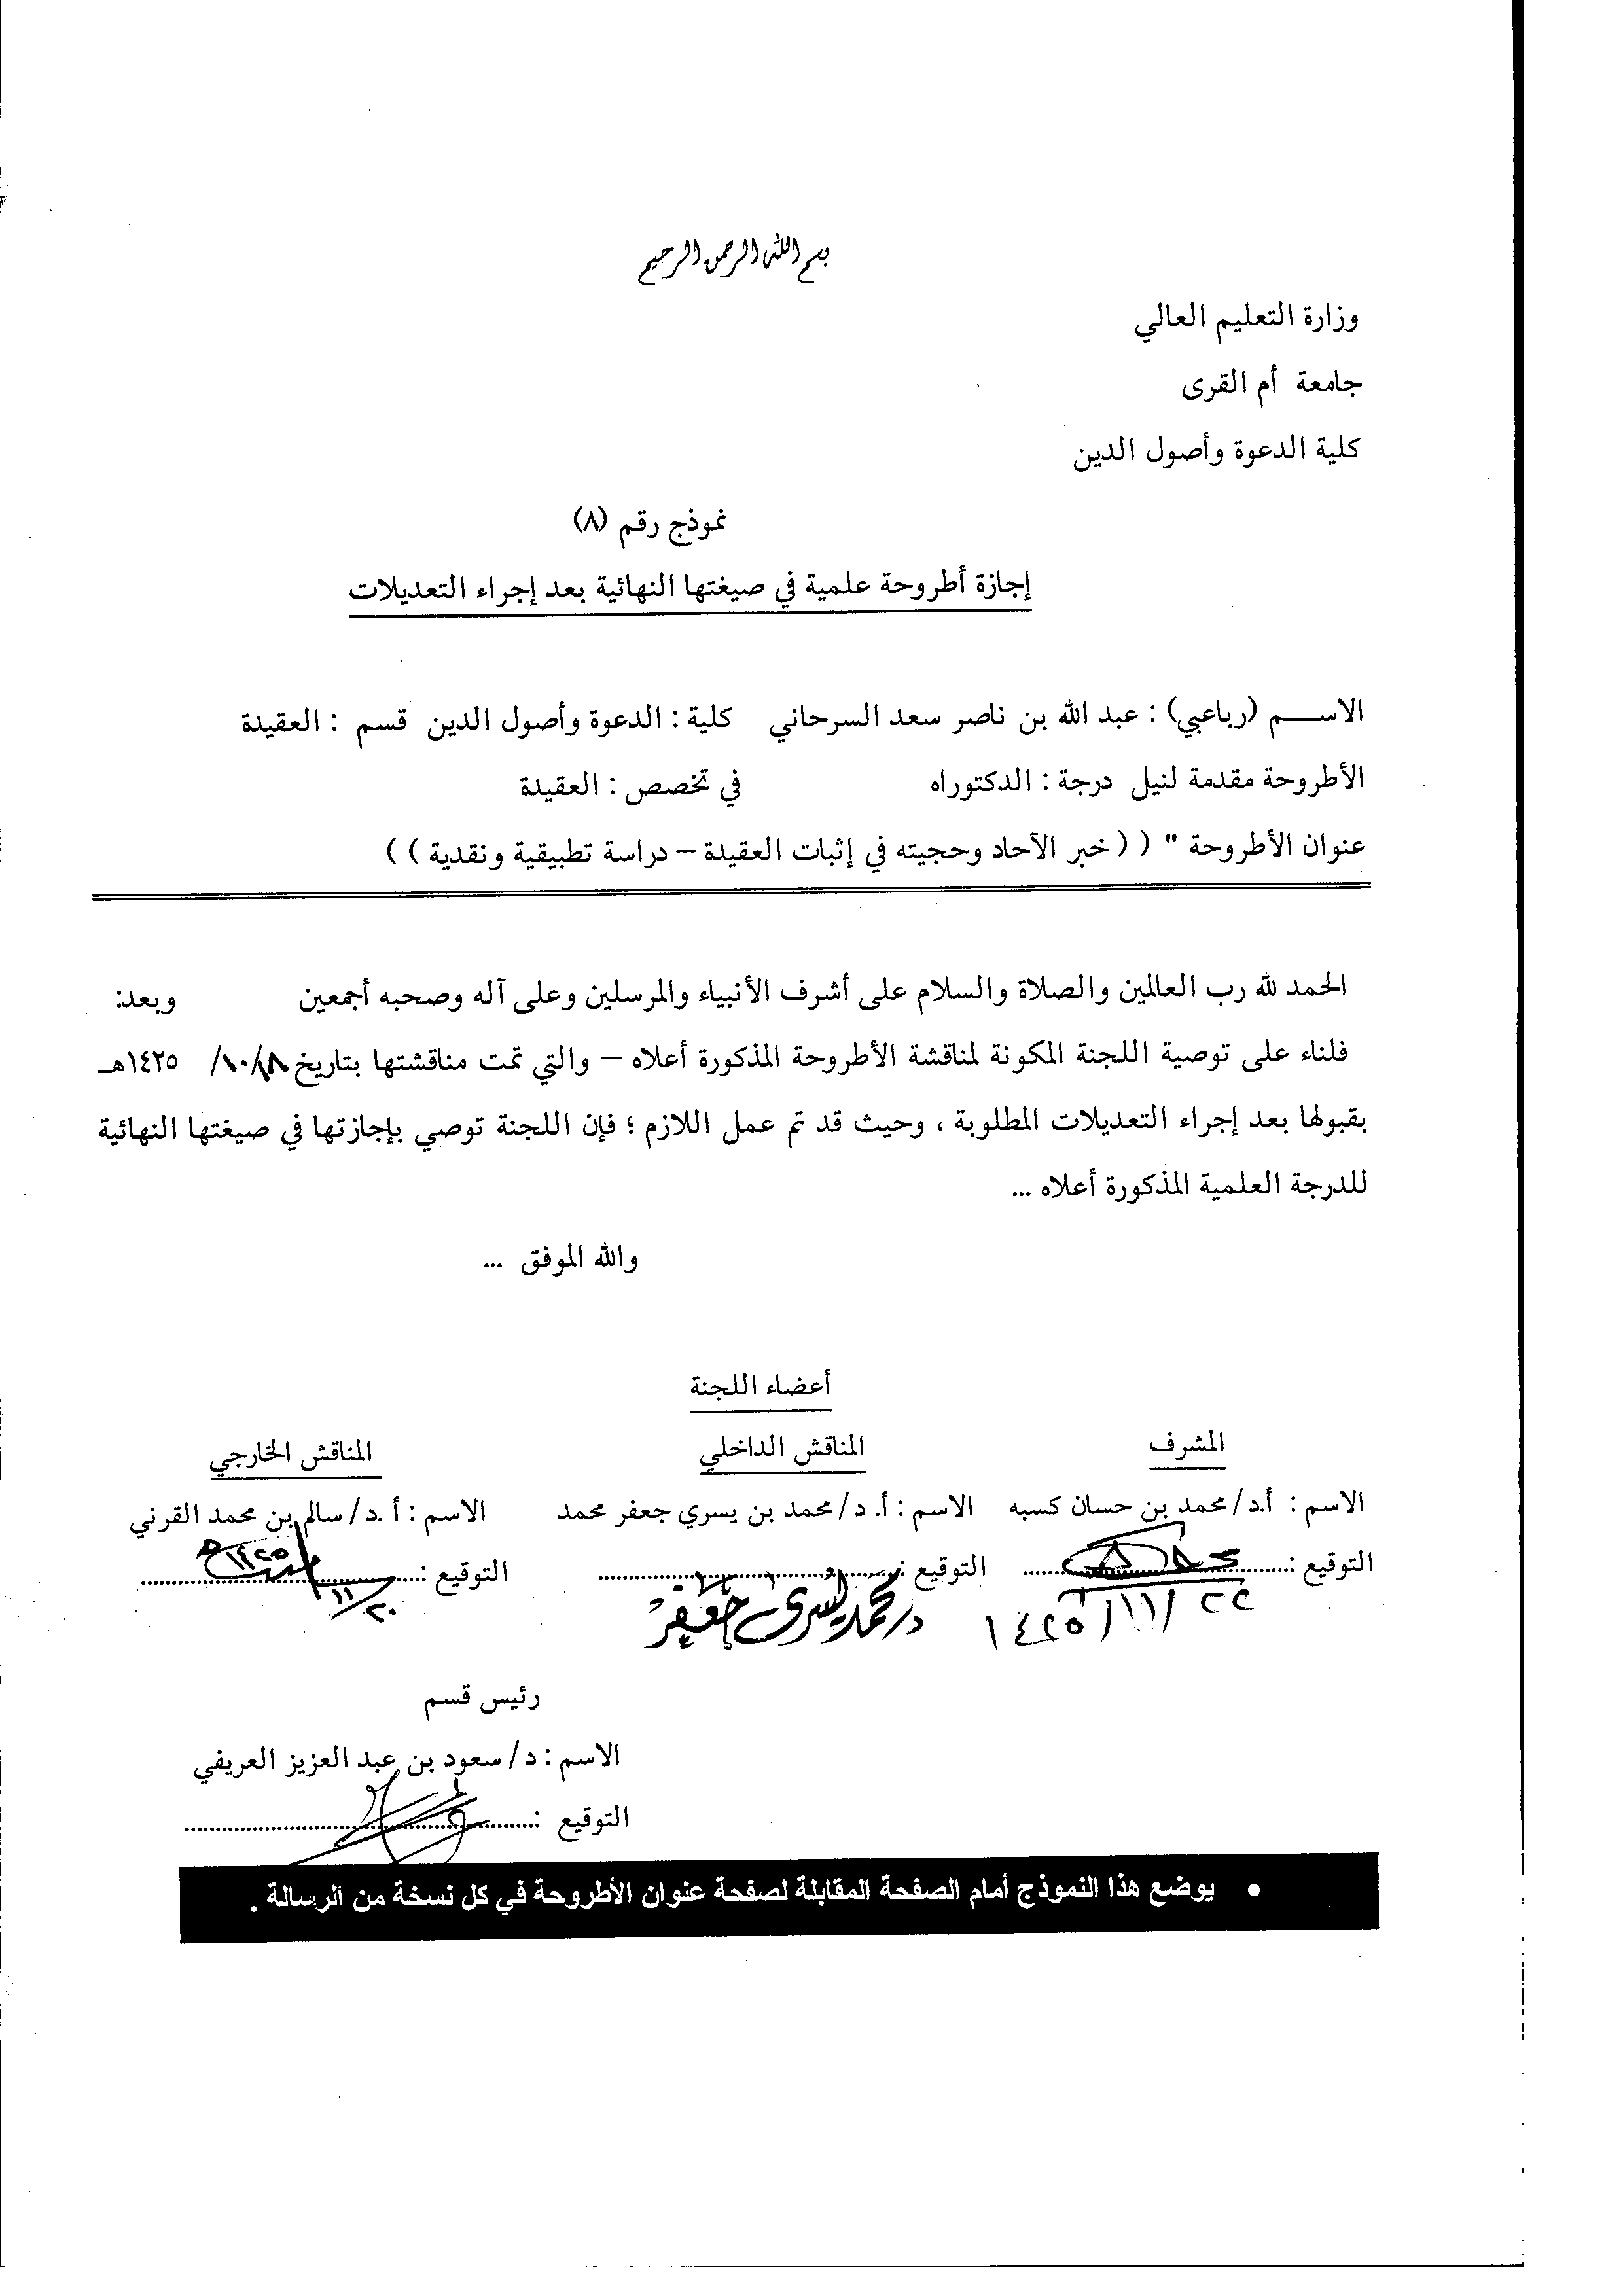 بسم الله الرحمن الرحيم
وزارة التعليم العالي
جامعة أم القرى
كلية الدعوة وأصول الدين
نموذج رقم (٨)
إجازة أطروحة علمية في صيغتها النهائية بعد إجراء التعديلات
الاســـم (رباعي) : عبد الله بن ناصر سعد السرحاني كلية : الدعوة وأصول الدين قسم : العقيدة
الأطروحة مقدمة لنيل درجة : الدكتوراه في تخصص : العقيدة
عنوان الأطروحة " ( ( خبر الآحاد وحجيته في إثبات العقيدة – دراسة تطبيقية ونقدية ) )
الحمد لله رب العالمين والصلاة والسلام على أشرف الأنبياء والمرسلين وعلى آله وصحبه أجمعين وبعد:
فلناء على توصية اللجنة المكونة لمناقشة الأطروحة المذكورة أعلاه – والتي تمت مناقشتها بتاريخ ١٨/١٠/ ١٤٢٥هـ
بقبولها بعد إجراء التعديلات المطلوبة ، وحيث قد تم عمل اللازم ؛ فإن اللجنة توصي بإجازتها في صيغتها النهائية
للدرجة العلمية المذكورة أعلاه ...
والله الموفق ...
أعضاء اللجنة
المشرف المناقش الداخلي المناقش الخارجي
الاسم : أ.د/ محمد بن حسان كسبه الاسم : أ. د/ محمد بن يسري جعفر محمد الاسم : أ .د/ سالم بن محمد القرني
التوقيع : التوقيع : التوقيع :
٢٢/١١/١٤٢٥ د. محمد يسرى جعفر ٢٠/١١/١٤٢٥هـ
رئيس قسم
الاسم : د/ سعود بن عبد العزيز العريفي
التوقيع :
• يوضع هذا النموذج أمام الصفحة المقابلة لصفحة عنوان الأطروحة في كل نسخة من الرسالة .